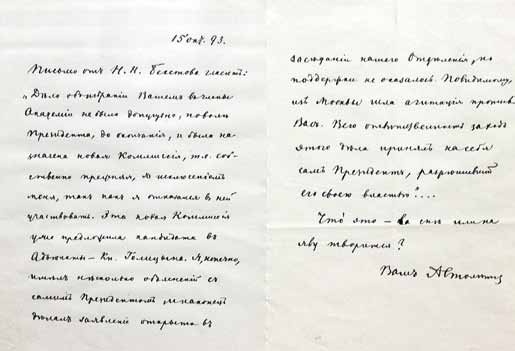 15 окт. 93.
Письмо отъ Н. Н. Бекетова гласитъ:
„Дѣло объ избраніи Вашемъ въ члены
Академіи не было допущено, по волѣ
Президента, до окончанія, и была на-
значена новая Коммиссія, т.е. соб-
ственно прежняя, за исключеніемъ
меня, такъ какъ я отказался въ ней
участвовать. Эта новая Коммиссія
уже предложила кандидата въ
Адъюнкты – Кн. Голицына. Я, конечно,
имѣлъ нѣсколько объясненій съ
самимъ Президентомъ, и наконецъ
дѣлалъ заявленіе открыто въ
засѣданіи нашего Отдѣленія, но
поддержки не оказалось. Повидимому,
изъ Москвы шла агитація противъ
Васъ. Всю отвѣтственность за ходъ
этого дѣла принялъ на себя
самъ Президентъ, разрѣшившій
его своею властью"...
Что́ это – во снѣ или на
яву творится?
Вашъ